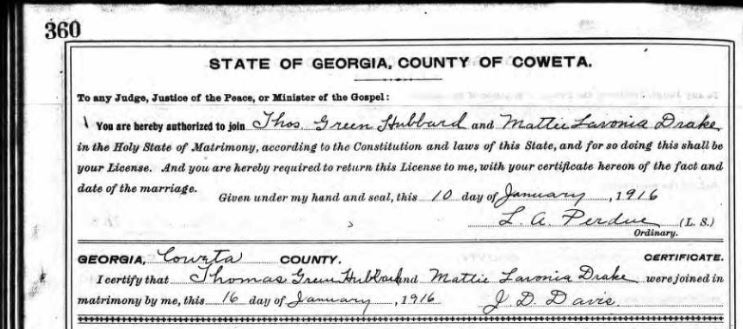 360
STATE OF GEORGIA, COUNTY OF COWETA.
To any Judge, Justice of the Peace, or Minister of the Gospel:
You are hereby authorized to join Thos. Green Hubbard and Mattie Lavonia Drake
in the Holy State of Matrimony, according to the Constitution and laws of this State, and for so doing this shall be
your License. And you are hereby required to return this License to me, with your certificate hereon of the fact and
date of the marriage.
Given under my hand and seal, this 10 day of January, 1916
L. A. Perdue (L. S.)
Ordinary.
GEORGIA, Coweta COUNTY. CERTIFICATE.
I certify that Thomas Green Hubbard and Mattie Lavonia Drake were joined in
matrimony by me, this 16 day of January, 1916 J. D. Davis